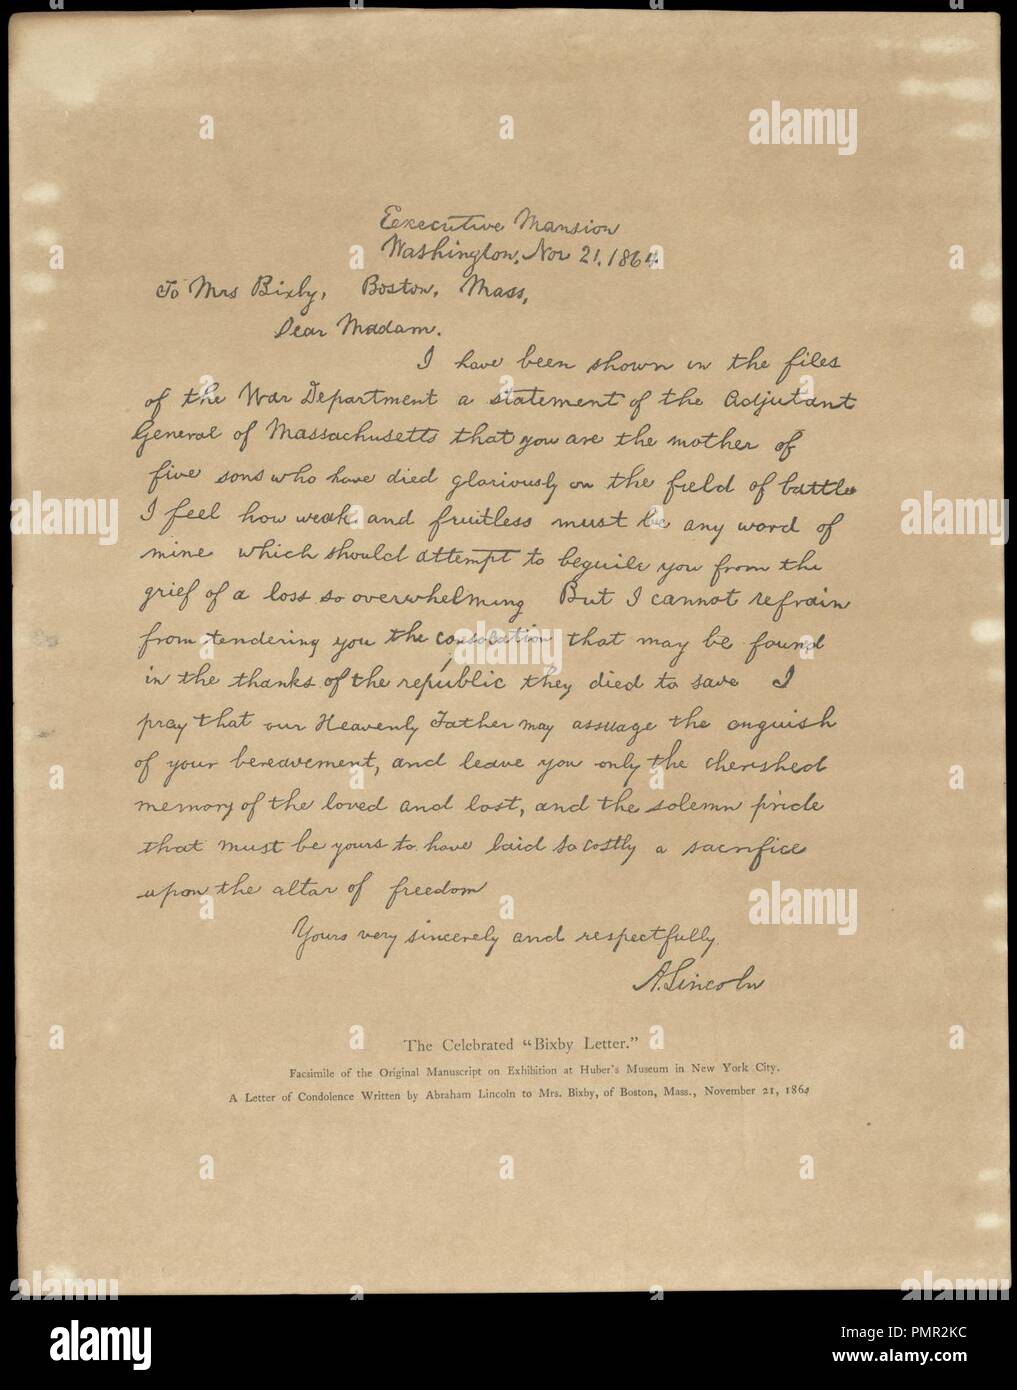 Executive Mansion
Washington, Nov 21, 1864.
To Mrs Bixby, Boston, Mass,
Dear Madam.
I have been shown in the files
of the War Department a statement of the Adjutant
General of Massachusetts that you are the mother of
five sons who have died gloriously on the field of battle
I feel how weak and fruitless must be any word of
mine which should attempt to beguile you from the
grief of a loss so overwhelming But I cannot refrain
from tendering you the consolation that may be found
in the thanks of the republic they died to save I
pray that our Heavenly Father may assuage the anguish
of your bereavement, and leave you only the cherished
memory of the loved and lost, and the solemn pride
that must be yours to have laid so costly a sacrifice
upon the altar of freedom
Yours very sincerely and respectfully.
A. Lincoln
The Celebrated “Bixby Letter.”
Facsimile of the Original Manuscript on Exhibition at Huber's Museum in New York City.
A Letter of Condolence Written by Abraham Lincoln to Mrs. Bixby, of Boston, Mass., November 21, 1864
alamy
alamy
alamy
alamy
alamy
alamy
alamy
a alamy
PMR2KC
www.alamy.com